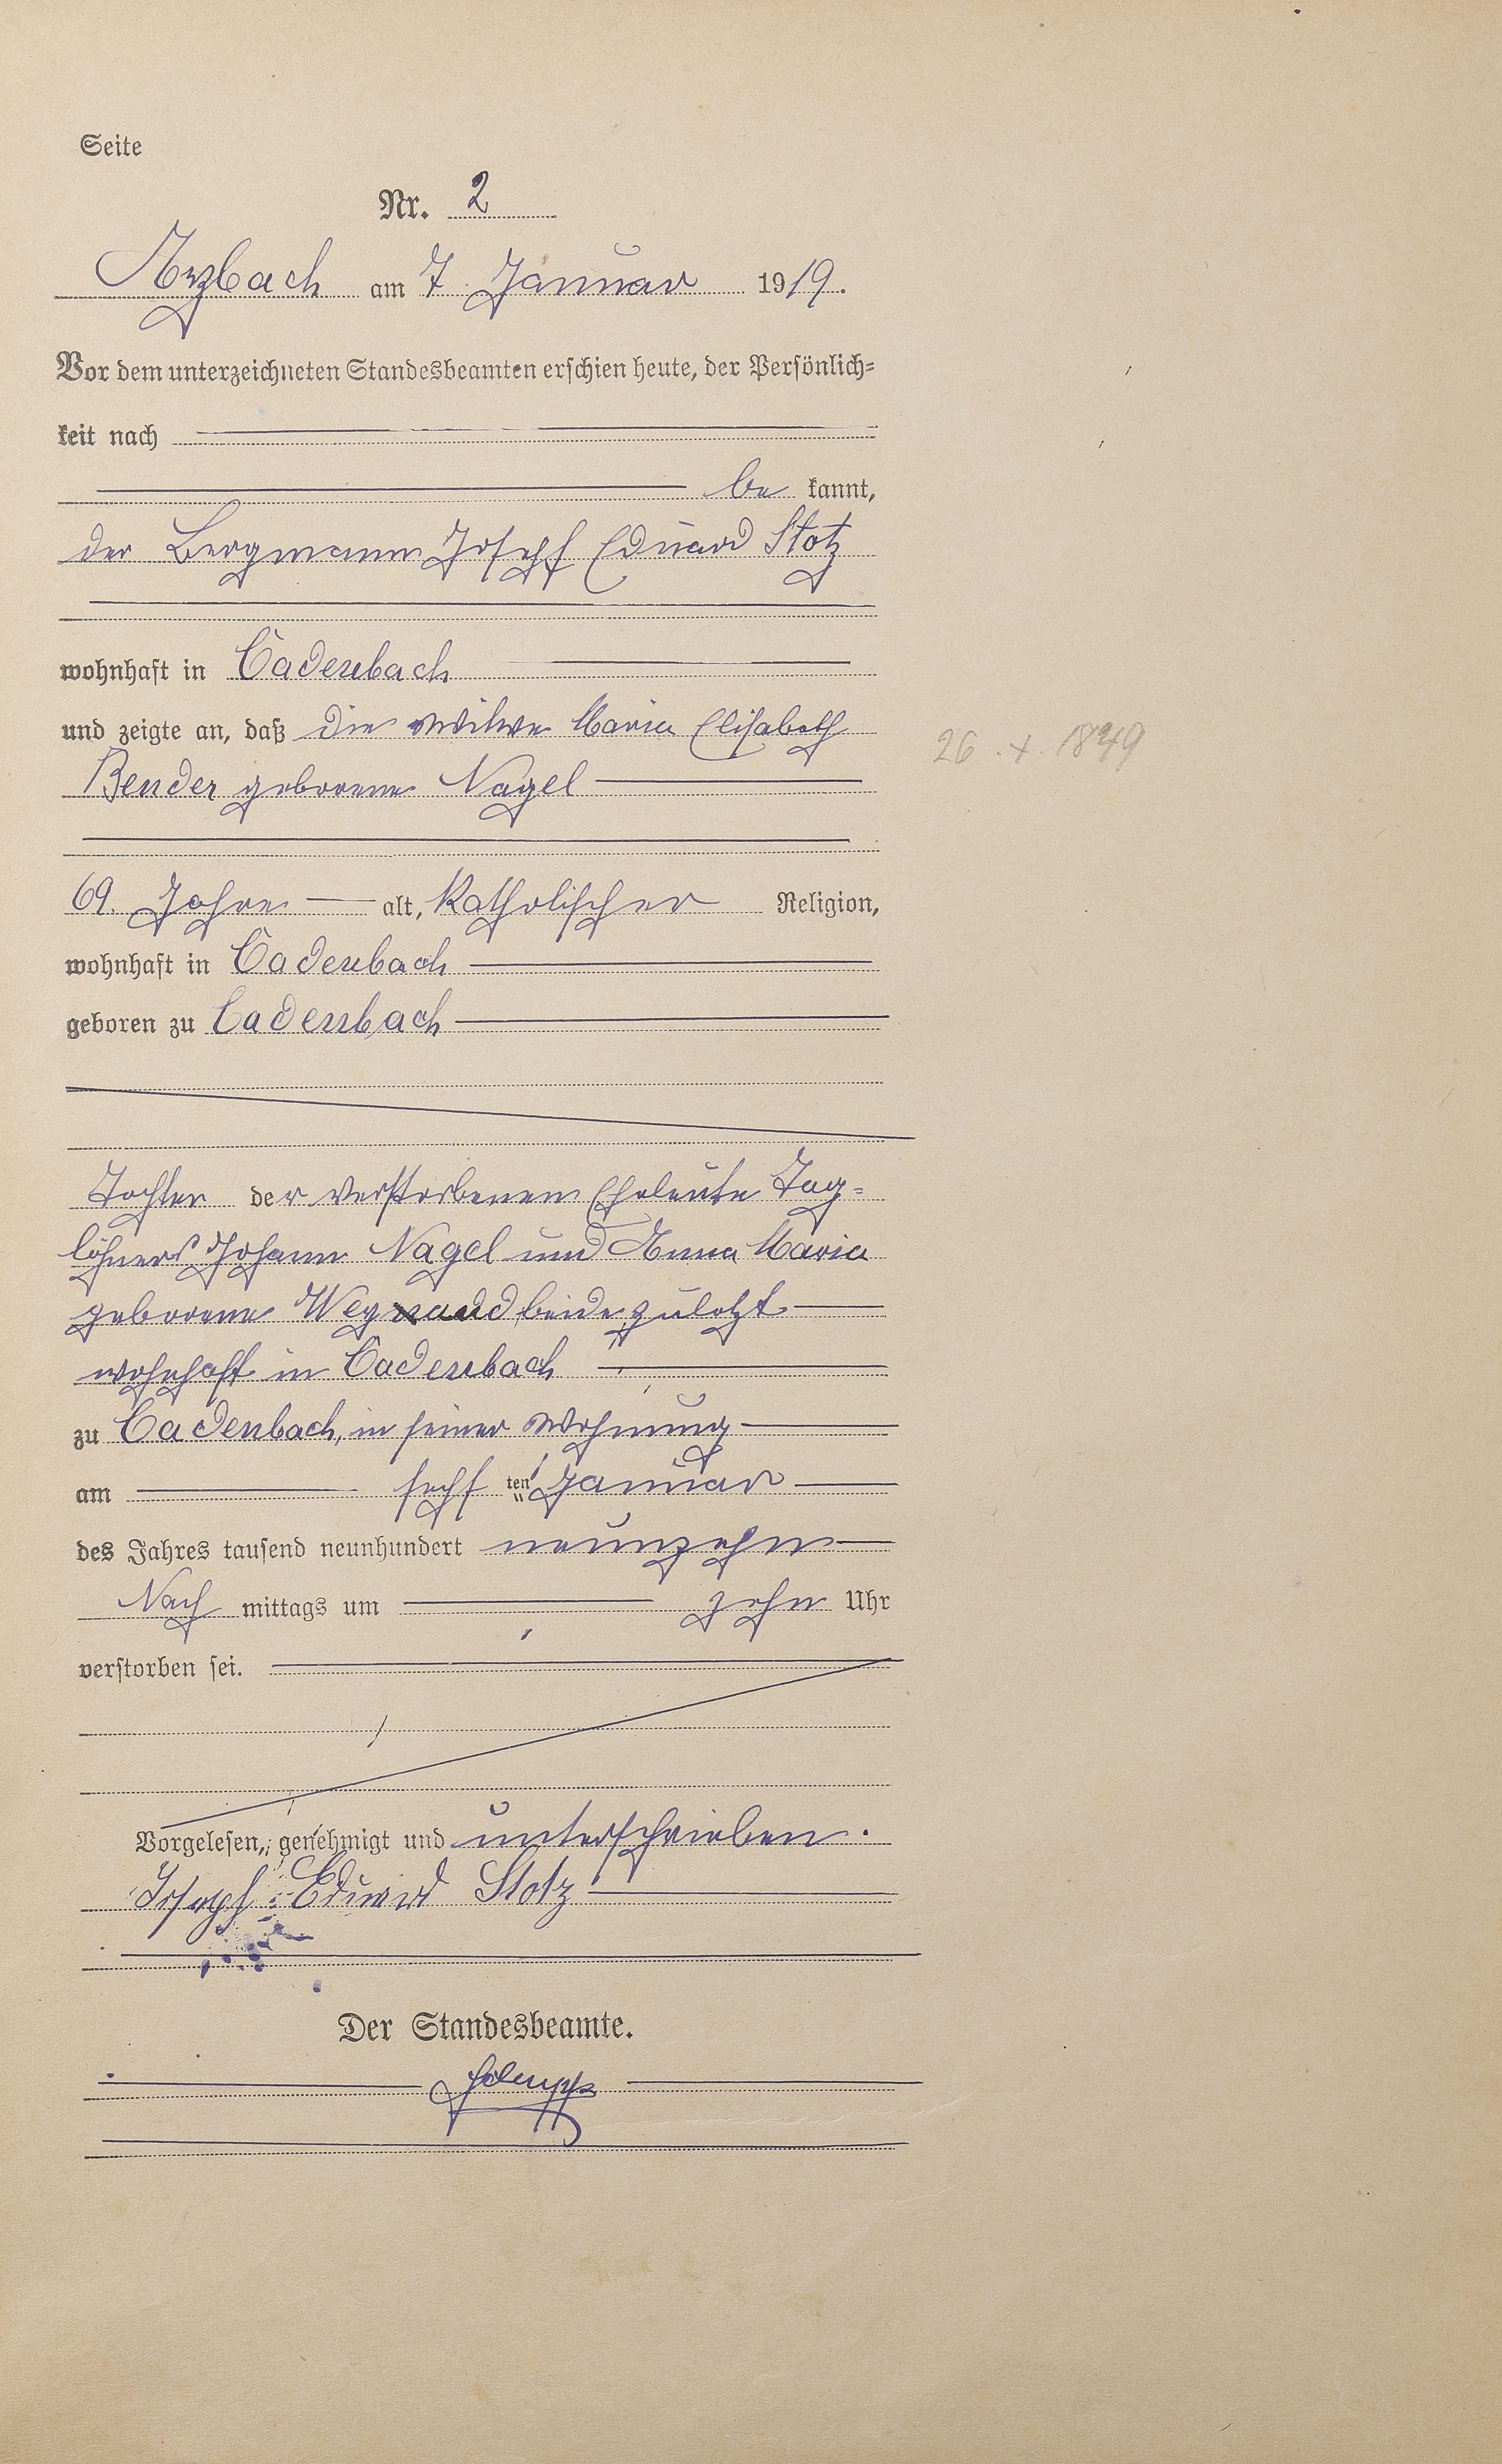 Seite
Nr. 2
Arzbach am 7 Januar 1919.
Vor dem unterzeichneten Standesbeamten erschien heute, der Persönlich=
keit nach
be kannt,
der Bergmann Joseph Eduard Stotz
wohnhaft in Cadenbach
und zeigte an, daß die Witwe Maria Elisabeth
26. X. 1849
Bender geborene Nagel
69. Jahre alt, Katholischer Religion,
wohnhaft in Cadenbach
geboren zu Cadenbach
Tochter der verstorbenen Eheleute Tag=
löhners Johann Nagel und Anna Maria
geborene beide zuletzt
wohnhaft in Cadenbach
zu Cadenbach, in seiner Wohnung
am sechs ten Januar
des Jahres tausend neunhundert neunzehn
Nach mittags um zehn Uhr
verstorben sei.
Vorgelesen, genehmigt und unterschrieben.
Joseph Eduard Stotz
Der Standesbeamte.